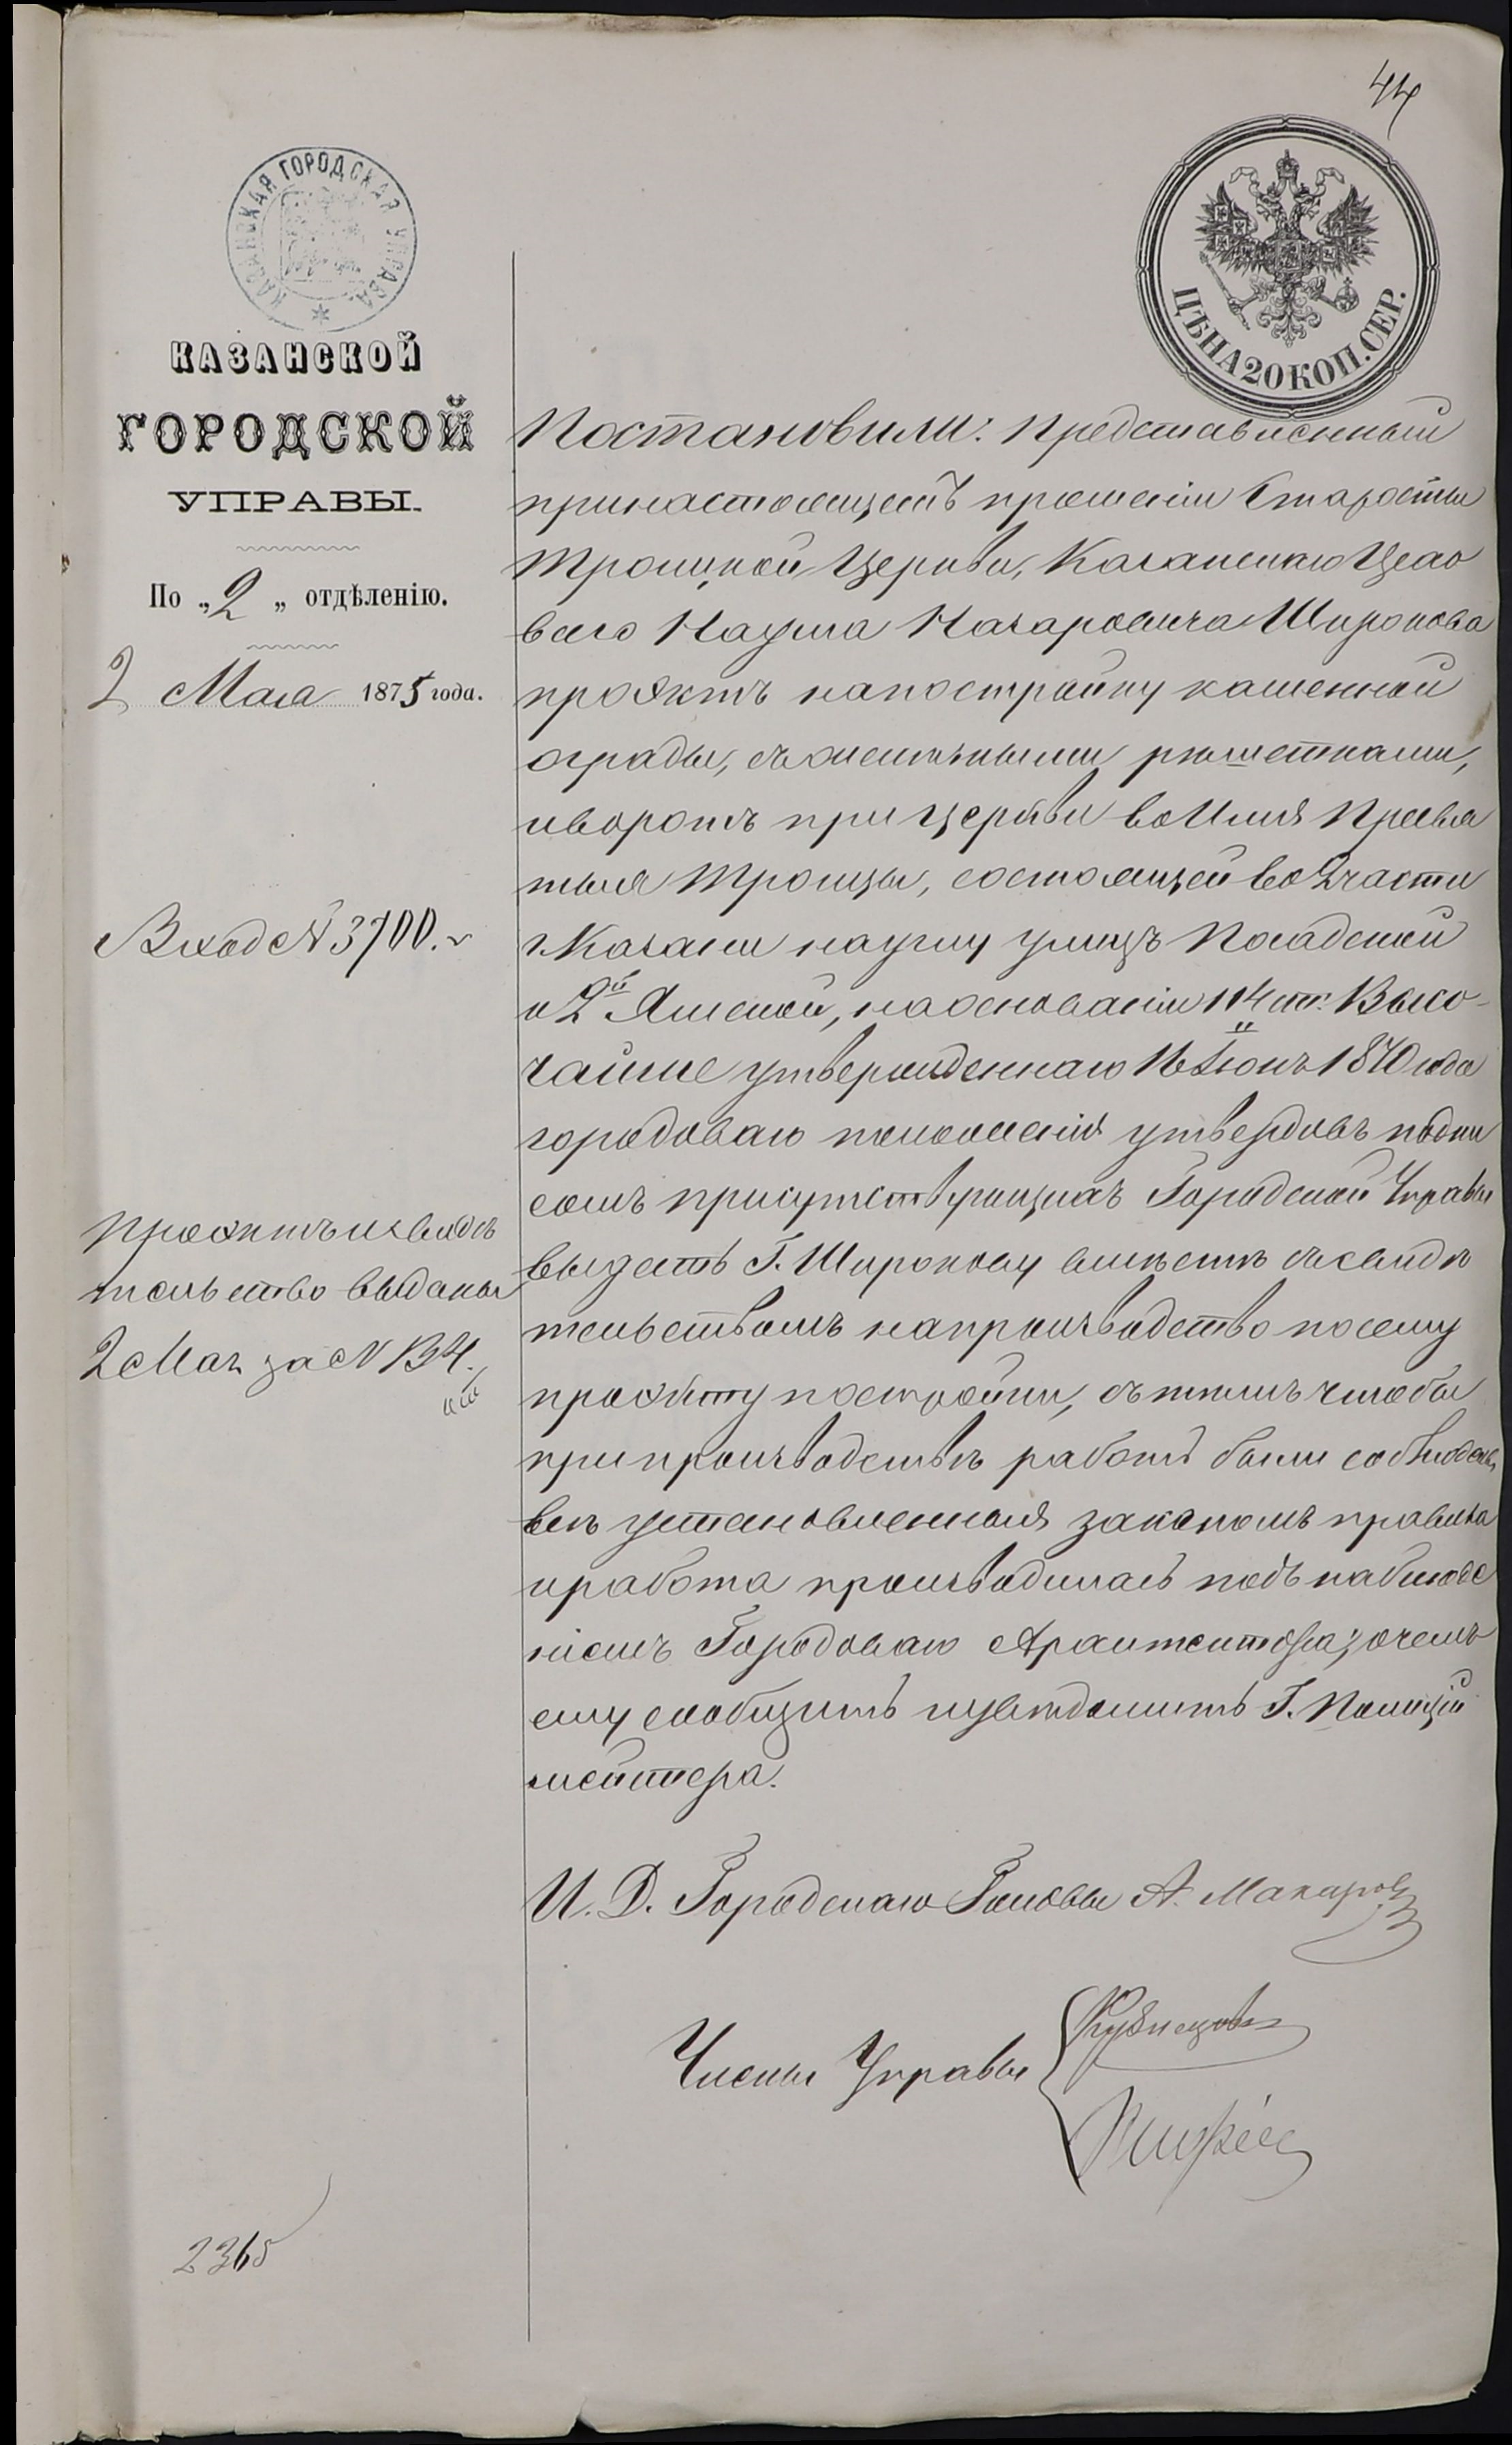 44
КАЗАНСКАЯ ГОРОДСКАЯ УПРАВА
ЦѢНА 20 КОП. СЕР.
КАЗАНСКОЙ
ГОРОДСКОЙ
УПРАВЫ.
По „2„ отдѣленію.
2 Мая 1875 года.
Вход № 3700.
Проэктъ и свидѣ
тельство выданы
2 Мая за № 134.
2365
Постановили: Представленный
при настоящемъ прошеніи Старосты
Троицкой Церкви, Казанскаго Цехо
ваго Наума Назаровича Широкова
проэктъ на постройку каменной
ограды, съ желѣзными рѣшетками,
и воротъ при церкви во Имя Пресвя
тыя Троицы, состоящей во 2 части
г. Казани на углу улицъ Посадской
и 2й Ямской, на основаніи 114 ст. Высо-
чайше утвержденнаго 16 Іюня 1870 года
городоваго положенія утвердивъ подпи
сомъ присутствующихъ Городской Управы
выдать Г. Широкову вмѣстѣ съ свидѣ
тельствомъ на производство по сему
проэкту постройки, съ тѣмъ чтобы
при производствѣ работъ были соблюдены
всѣ установленныя закономъ правила
и работа производилась подъ наблюде
ніемъ Городоваго Архитектора; о чемъ
ему сообщить и увѣдомить Г. Полиций
мейстера.
И. Д. Городскаго Головы А. Макаров
Члены Управы
Кузнецовъ